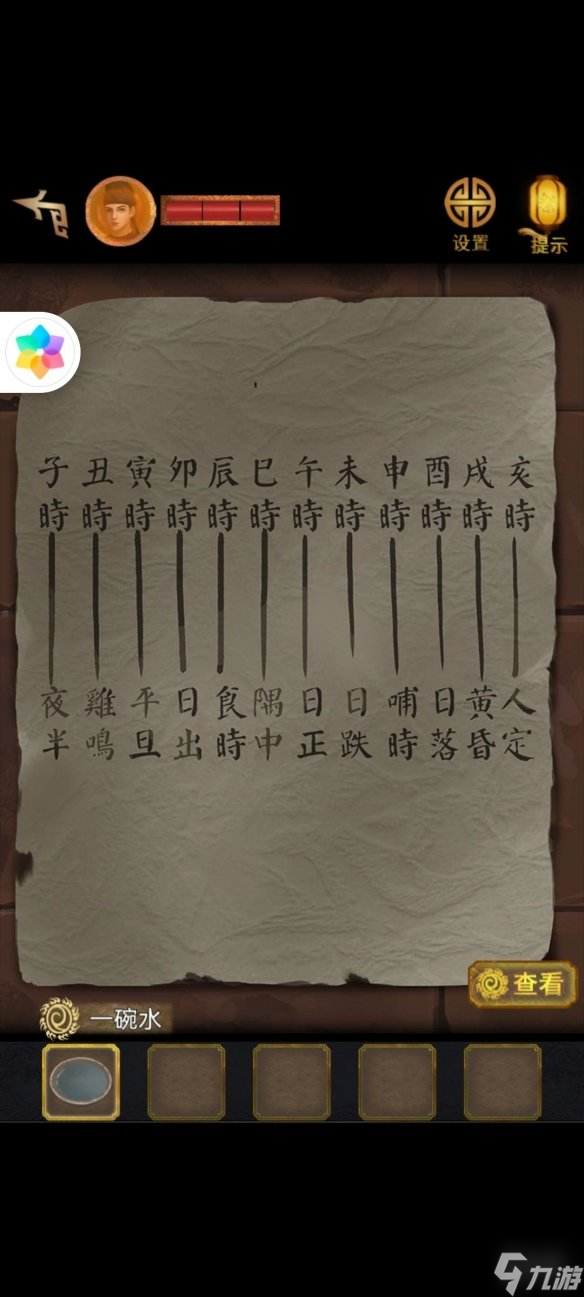 设置
提示
子丑寅卯辰巳午未申酉戌亥
時時時時時時時時時時時時
夜雞平日食隅日日哺日黄人
半鳴旦出時中正跌時落昏定
查看
一碗水
九游